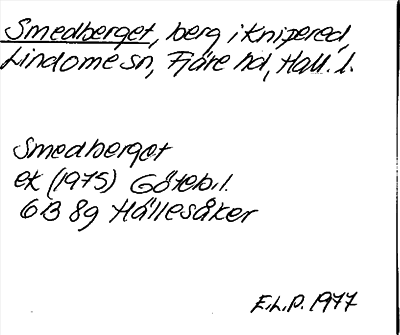 Smedberget, berg i Knipered,
Lindome sn, Fjäre hd, Hall. l.
Smedberget
ek (1975) Göteb. l.
6B 8g Hällesåker
E.L.P. 1977